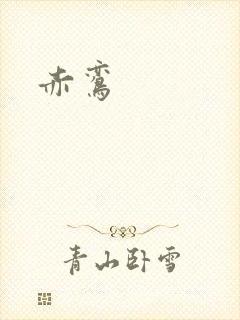 赤鸾
青山卧雪